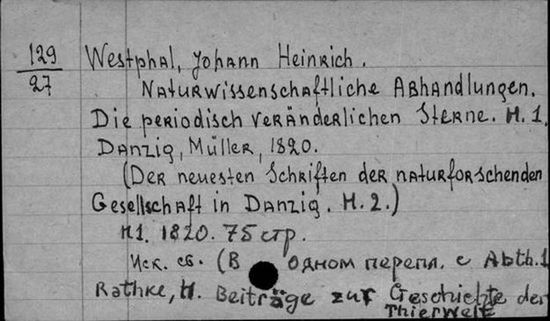 129
27
Westphal, Johann Heinrich.
Naturwissenschaftliche Abhandlungen.
Die periodisch veränderlichen Sterne. H. 1.
Danzig, Müller, 1820.
(Der neuesten Schriften der naturforschenden
Gesellschaft in Danzig. H. 2.)
H1. 1820. 75 стр.
Иск. сб. (В одном перепл. с Abth. 1
Rathke, H. Beiträge zur Geschichte der
Thierwelt